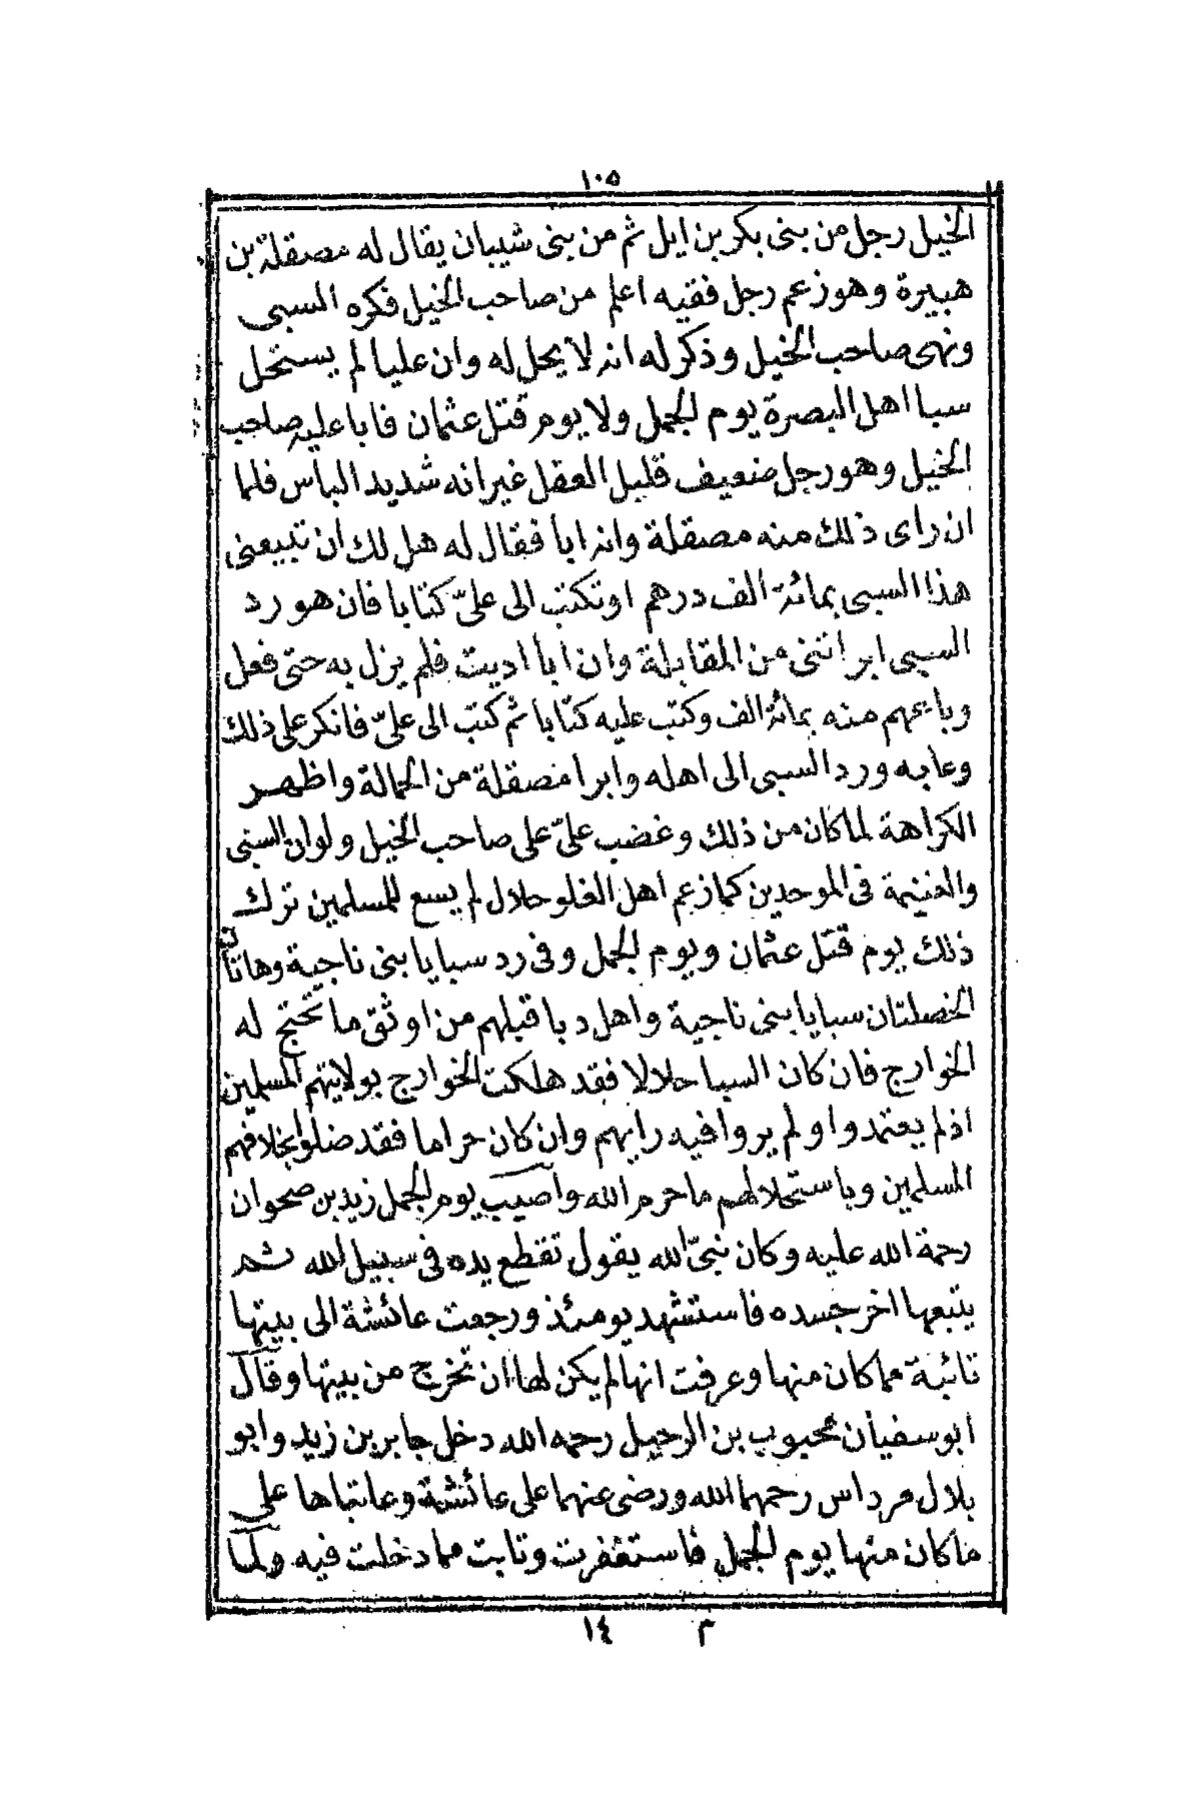 ١٠٥
الخيل رجل من بنى بكر بن ايل ثم من بنى شيبان يقال له مصقلة بن
هبيرة وهو زعم رجل فقيه اعلم من صاحب الخيل فكره السبى
ونهى صاحب الخيل وذكر له انه لا يحل له وان عليا لم يستحل
سبا اهل البصرة يوم الجمل ولا يوم قتل عثمان فابا عليه صاحب
الخيل وهو رجل ضعيف قليل العقل غير انه شديد الباس فلما
ان راى ذلك منه مصقلة وانه ابا فقال له هل لك ان تبيعنى
هذا السبى بمائة الف درهم او تكتب الى علىّ كتابا فان هو رد
السبى ابراتنى من المقابلة وان ابا اديت فلم يزل به حتى فعل
وبايعهم منه بمائة الف وكتب عليه كتابا ثم كتب الى علىّ فانكر على ذلك
وعابه ورد السبى الى اهله وابرا مصقلة من الحمالة واظهر
الكراهة لما كان من ذلك وغضب علىّ على صاحب الخيل ولو ان السبى
والغنيمة فى الموحدين كما زعم اهل الغلو حلال لم يسع للمسلمين ترك
ذلك يوم قتل عثمان ويوم الجمل وفى رد سبايا بنى ناجية وهاتان
الخصلتان سبايا بنى ناجية واهل دبا قبلهم من اوثق ما تحتج له
الخوارج فان كان السبا حلالا فقد هلكت الخوارج بولايتهم المسلمين
اذ لم يعتمدوا ولم يروا فيه رايهم وان كان حراما فقد ضلوا بخلافهم
المسلمين وباستحلالهم ما حرم الله واصيب يوم الجمل زيد بن صحوان
رحمة الله عليه وكان نبىّ الله يقول تقطع يده فى سبيل الله ثم
يتبعها اخر جسده فاستشهد يومئذ ورجعت عائشة الى بيتها
تائبة مما كان منها وعرفت انها لم يكن لها ان تخرج من بيتها وقال
ابو سفيان محبوب بن الرحيل رحمه الله دخل جابر بن زيد وابو
بلال مرداس رحمهما الله ورضى عنهما على عائشة وعاتباها على
ما كان منها يوم الجمل فاستغفرت وتابت مما دخلت فيه ولما
م ١٤